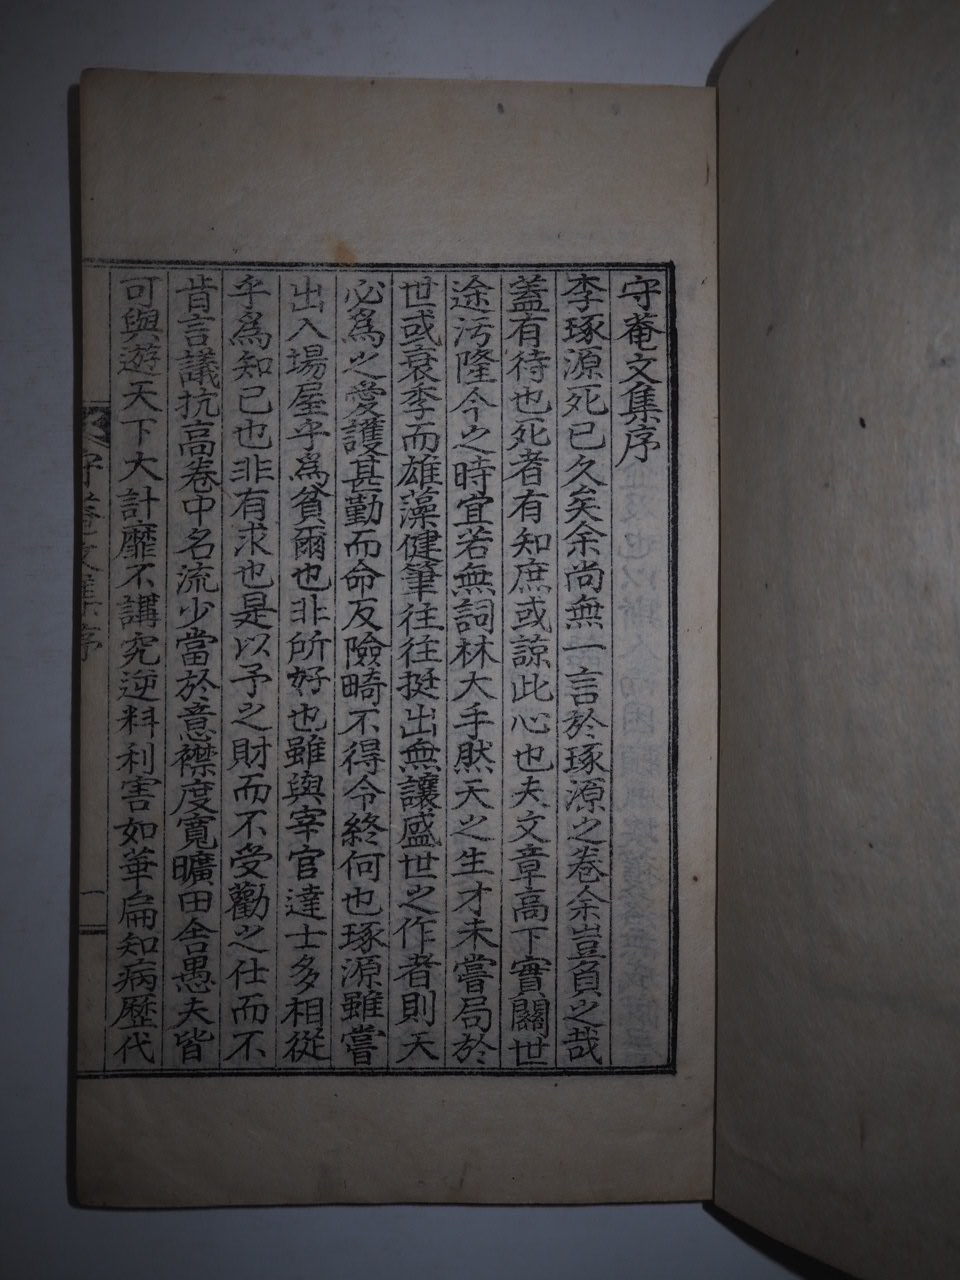 守菴文集序
李琢源死已久矣余尚無一言於琢源之卷余豈負之哉
蓋有待也死者有知庶或諒此心也夫文章高下實關世
途汚隆今之時宜若無詞林大手然天之生才未嘗局於
世或衰季而雄藻健筆往往挺出無讓盛世之作者則天
必爲之愛護甚勤而命反險畸不得令終何也琢源雖嘗
出入場屋乎爲貧爾也非所好也雖與宰官達士多相從
乎爲知已也非有求也是以予之財而不受勸之仕而不
肯言議抗高卷中名流少當於意襟度寬曠田舍愚夫皆
可與遊天下大計靡不講究逆料利害如華扁知病歷代
守菴文集序
一